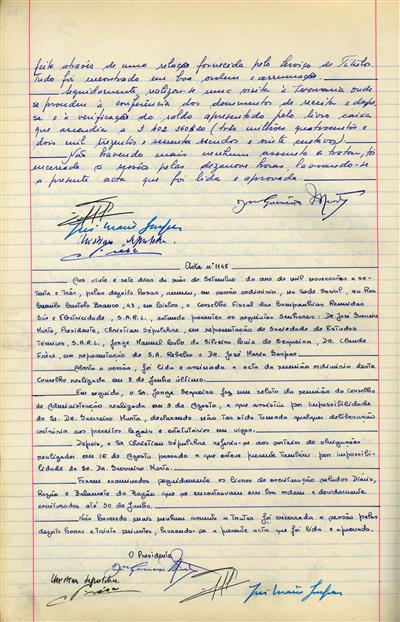 feita através de uma relação fornecida pelo Serviço de Títulos.
Tudo foi encontrado em boa ordem e arrumação.
Seguidamente realizou-se uma visita à Tesouraria onde
se procedeu à conferência dos documentos de receita e despe-
sa e à verificação do saldo apresentado pelo livro caixa
que ascendia a 3 402 560$20 (três milhões quatrocentos e
dois mil quinhentos e sessenta escudos e vinte centavos).
Não havendo mais nenhum assunto a tratar, foi
encerrada a sessão pelas dezanove horas, lavrando-se
a presente acta que foi lida e aprovada.
José Maria Gaspar
Christian Sépulchre.
Acta nº 1165
Aos vinte e sete dias do mês de Setembro do ano de mil novecentos e se-
tenta e três, pelas dezoito horas, reuniu, em sessão ordinária, na Sede Social, na Rua
Camilo Castelo Branco, 43, em Lisboa, o Conselho Fiscal das Companhias Reunidas
Gás e Electricidade, S.A.R.L., estando presentes os seguintes Senhores: Dr José Guerreiro
Murta, Presidente, Christian Sépulchre, em representação de Sociedade de Estudos
Técnicos, S.A.R.L., Jorge Manuel Couto da Silveira Ruis de Sequeira, Dr. Claude
Frère, em representação de S.A. Rebelco e Dr. José Maria Gaspar.
Aberta a sessão, foi lida e assinada a acta da reunião ordinária deste
Conselho realizada em 8 de Junho último.
Em seguida, o Sr. Jorge Sequeira fez um relato da reunião do Conselho
de Administração realizada em 3 de Agosto, a que assistiu por impossibilidade
do Sr. Dr. Guerreiro Murta, declarando não ter sido tomada qualquer deliberação
contrária aos preceitos legais e estatutários em vigor.
Depois, o Sr Christian Sépulchre referiu-se aos sorteios de obrigações
realizados em 16 de Agosto passado a que esteve presente também por impossibi-
lidade do Sr. Dr. Guerreiro Murta.
Foram examinados seguidamente os livros de escrituração selados Diário,
Razão e Balancete do Razão que se encontravam em boa ordem e devidamente
escriturados até 30 de Junho.
Não havendo mais nenhum assunto a tratar foi encerrada a sessão pelas
dezoito horas e trinta minutos, lavrando-se a presente acta que foi lida e aprovada.
O Presidente
Christian Sépulchre
José Maria Gaspar